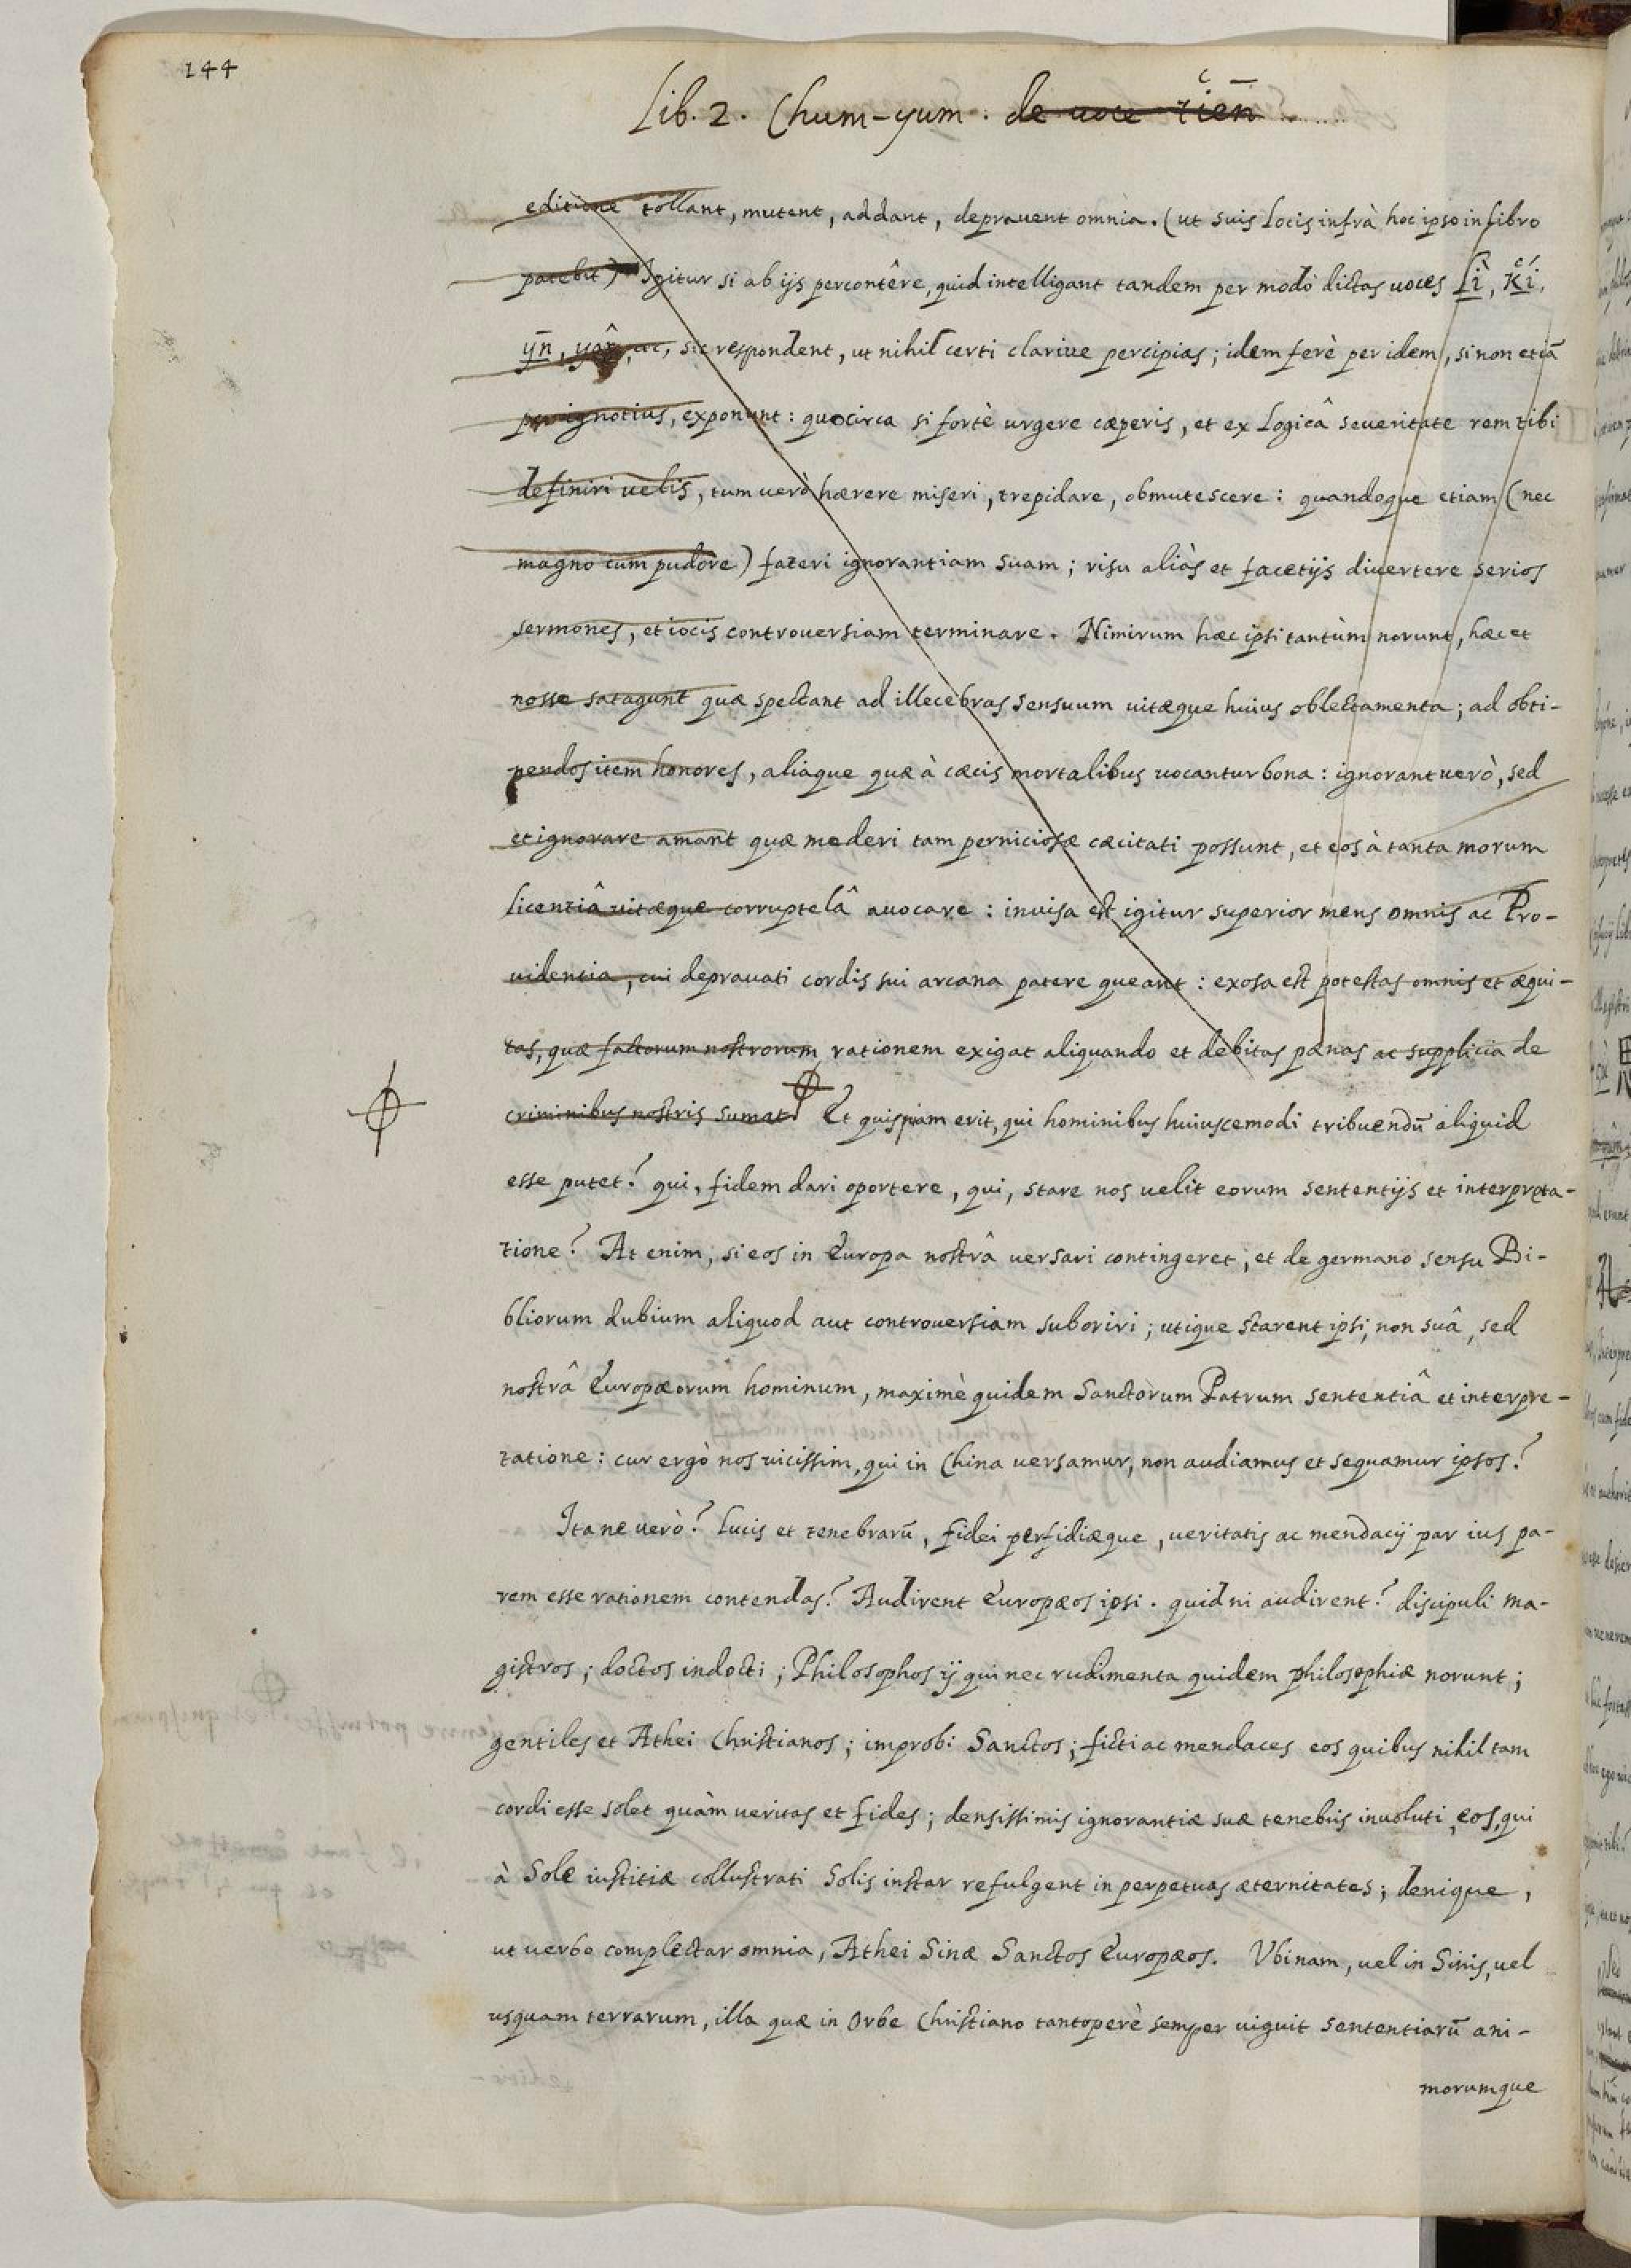 144
Lib. 2. Chum-yum: de uoce tien
editione tollant, mutent, addant, deprauent omnia. (ut suis locis infrà hoc ipso in libro
patebit) Igitur si ab ijs percontêre, quid intelligant tandem per modò dictas uoces Lì, Kí,
yn, yâm, etc, sic respondent, ut nihil certi clariue percipias; idem ferè per idem, si non etiā
per ignotius, exponunt: quocirca si fortè urgere cæperis, et ex Logicâ seueritate rem tibi
definiri uelis, tum uerò hærere miseri, trepidare, obmutescere: quandoque etiam (nec
magno cum pudore) fateri ignorantiam suam; risu aliàs et facetijs diuertere serios
sermones, et iocis controuersiam terminare. Nimirum hæc ipsi tantùm norunt, hæc et
nosse satagunt quæ spectant ad illecebras sensuum uitæque huius oblectamenta; ad obti-
nendos item honores, aliaque quæ à cæcis mortalibus uocantur bona: ignorant uerò, sed
et ignorare amant quæ mederi tam perniciosæ cæcitati possunt, et eos à tanta morum
licentiâ uitæque corruptelâ auocare: inuisa est igitur superior mens omnis ac Pro-
uidentia, cui deprauati cordis sui arcana patere queant: exosa est potestas omnis et æqui-
tas, quæ factorum nostrorum rationem exigat aliquando et debitas pænas ac supplicia de
criminibus nostris sumat. Et quispiam erit, qui hominibus huiuscemodi tribuendū aliquid
esse putet? qui, fidem dari oportere, qui, stare nos uelit eorum sententijs et interpreta-
tione? At enim, si eos in Europa nostrâ uersari contingeret, et de germano sensu Bi-
bliorum dubium aliquod aut controuersiam suboriri; utique starent ipsi, non suâ, sed
nostrâ Europæorum hominum, maximè quidem Sanctorum Patrum sententiâ et interpre-
tatione: cur ergò nos uicissim, qui in China uersamur, non audiamus et sequamur ipsos?
Itane uerò? Lucis et tenebrarū, fidei perfidiæque, ueritatis ac mendacij par ius pa-
rem esse rationem contendas? Audirent Europæos ipsi. quidni audirent? discipuli ma-
gistros; doctos indocti; Philosophos ij qui nec rudimenta quidem philosophiæ norunt;
gentiles et Athei Christianos; improbi Sanctos; ficti ac mendaces eos quibus nihil tam
cordi esse solet quàm ueritas et fides; densissimis ignorantiæ suæ tenebris inuoluti, eos, qui
à Sole iustitiæ collustrati Solis instar refulgent in perpetuas æternitates; denique,
ut uerbo complectar omnia, Athei Sinæ Sanctos Europæos. Vbinam, uel in Sinis, uel
usquam terrarum, illa quæ in Orbe Christiano tantoperè semper uiguit sententiarū ani-
morumque